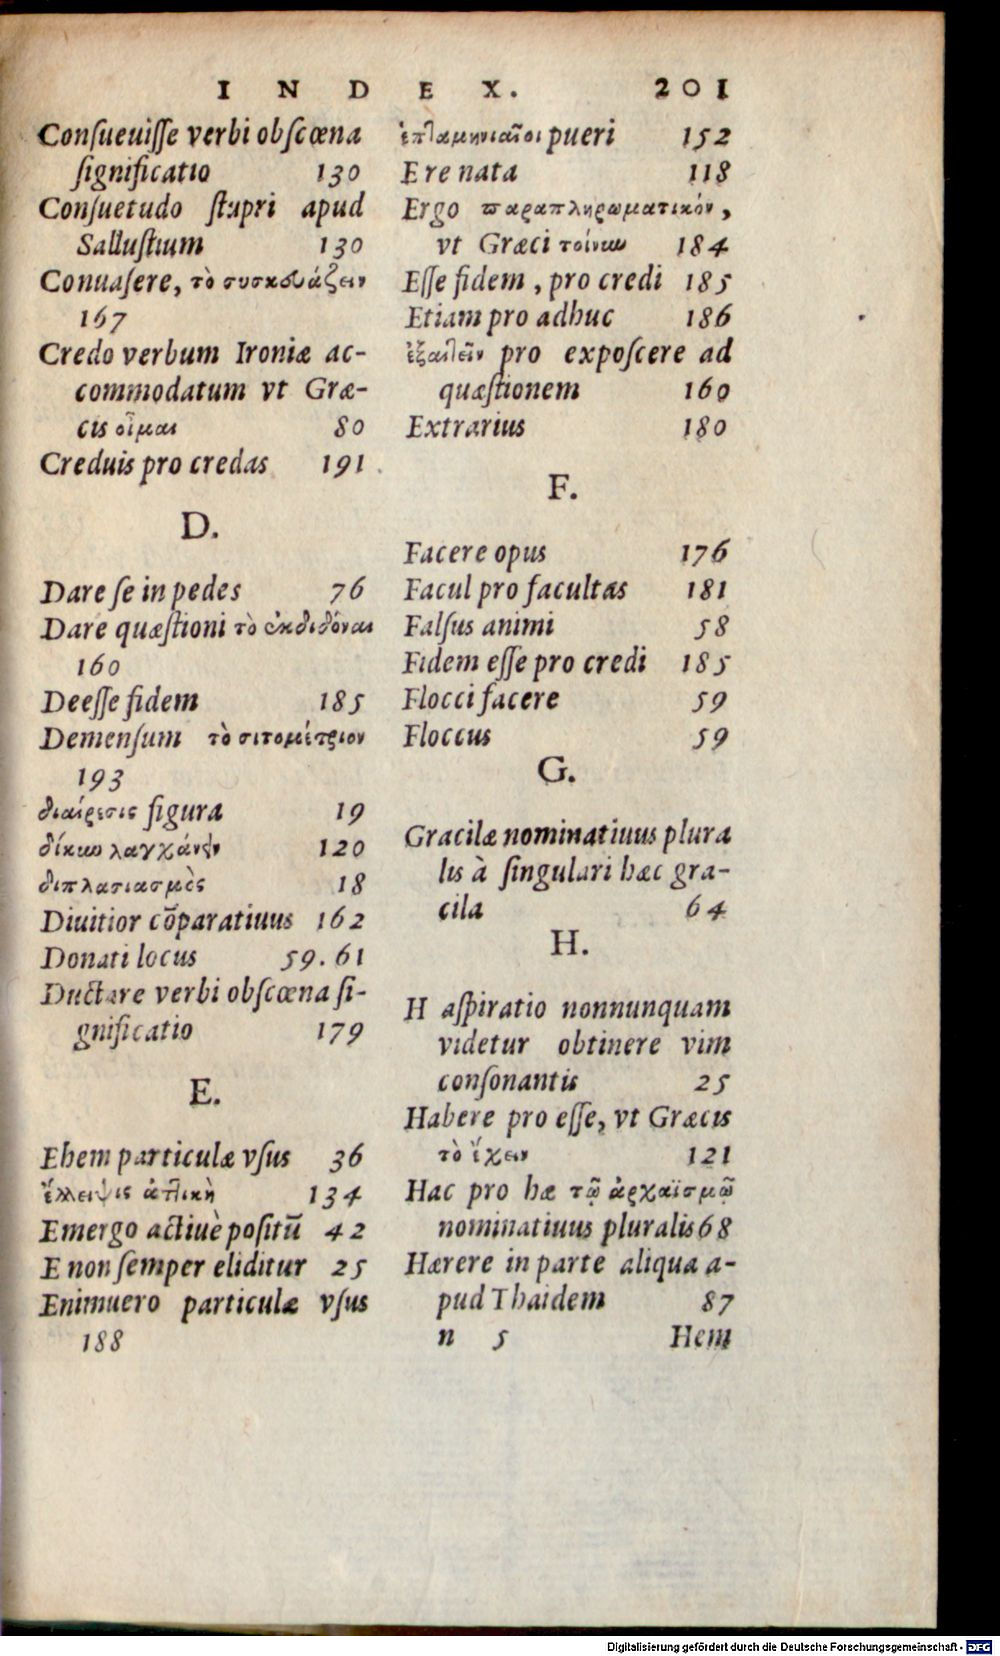 INDEX. 201
Conſueuiſſe verbi obſcœna
ſignificatio 130
Conſuetudo ſtupri apud
Salluſtium 130
Conuaſere, τὸ συσκευάζειν
167
Credo verbum Ironiæ ac-
commodatum vt Græ-
cis οἶμαι 80
Creduis pro credas 191
D.
Dare ſe in pedes 76
Dare quæſtioni τὸ ἐκδιδόναι
160
Deeſſe fidem 185
Demenſum τὸ σιτομέτριον
193
διαίρεσις figura 19
δίκην λαγχάνειν 120
διπλασιασμὸς 18
Diuitior cōparatiuus 162
Donati locus 59. 61
Ductare verbi obſcœna ſi-
gnificatio 179
E.
Ehem particulæ vſus 36
ἔλλειψις ἀτλικὴ 134
Emergo actiuè poſitū 42
E non ſemper eliditur 25
Enimuero particulæ vſus
188
ἑπταμηνιαῖοι pueri 152
E re nata 118
Ergo παραπληρωματικόν,
vt Græci τοίνυν 184
Eſſe fidem, pro credi 185
Etiam pro adhuc 186
ἐξαιτεῖν pro expoſcere ad
quæſtionem 160
Extrarius 180
F.
Facere opus 176
Facul pro facultas 181
Falſus animi 58
Fidem eſſe pro credi 185
Flocci facere 59
Floccus 59
G.
Gracilæ nominatiuus plura
lis à ſingulari hæc gra-
cila 64
H.
H aſpiratio nonnunquam
videtur obtinere vim
conſonantis 25
Habere pro eſſe, vt Græcis
τὸ ἔχειν 121
Hac pro hæ τῷ ἀρχαϊσμῷ
nominatiuus pluralis 68
Hærere in parte aliqua a-
pud Thaidem 87
n 5 Hem
Digitalisierung gefördert durch die Deutsche Forschungsgemeinschaft - DFG